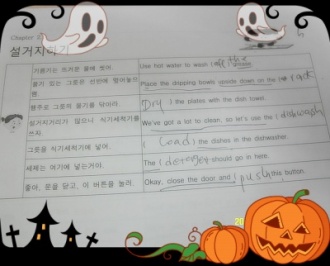 Chapter
설거지하기
기름기는 뜨거운 물에 씻어.
Use hot water to wash (off the grease.
물기 있는 그릇은 선반에 엎어놓으렴.
Place the dripping bowls upside down on the (rack
행주로 그릇의 물기를 닦아라.
Dry ) the plates with the dish towel.
설거지거리가 많으니 식기세척기를 쓰자.
We've got a lot to clean, so let's use the ( dishwash
그릇을 식기세척기에 넣어.
( Load ) the dishes in the dishwasher.
세제는 여기에 넣는거야.
The ( deterget should go in here.
좋아, 문을 닫고, 이 버튼을 눌러.
Okay, close the door and ( push this button.